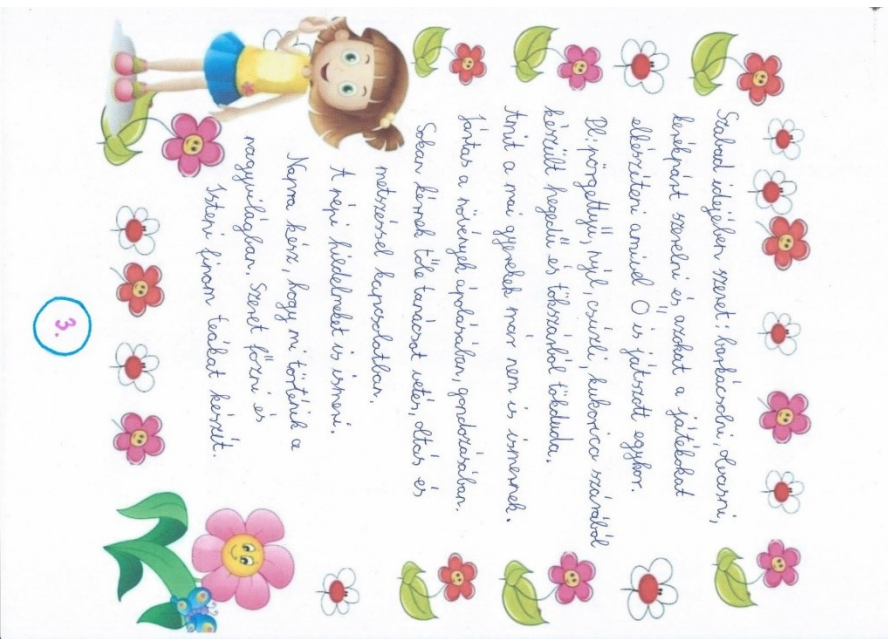 Szabad idejében szeret: barkácsolni, olvasni,
kerékpárt szerelni és azokat a játékokat
elkészíteni amivel Ő is játszott egykor.
Pl: pörgettyű, nyíl, csúzli, kukorica szárából
készült hegedű és tökszárból tökduda.
Amit a mai gyerekek már nem is ismernek.
Jártas a növények ápolásában, gondozásában.
Sokan kérnek tőle tanácsot vetés, oltás és
metszéssel kapcsolatban.
A népi hiedelmeket is ismeri.
Napra kész, hogy mi történik a
nagyvilágban. Szeret főzni és
Isteni finom teákat készít.
3.